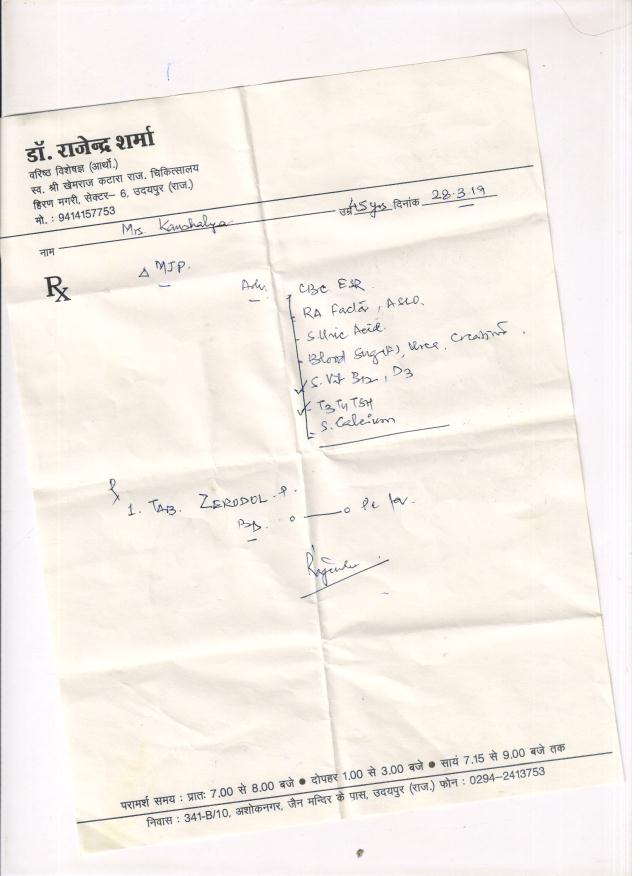 डॉ. राजेन्द्र शर्मा
वरिष्ठ विशेषज्ञ (आर्थो.)
स्व. श्री खेमराज कटारा राज. चिकित्सालय
हिरण मगरी, सेक्टर– 6, उदयपुर (राज.)
मो. : 9414157753
नाम Mrs. Kaushalya उम्र 45 yrs दिनांक 28.3.19
Rx
△ MJP.
Adv.
CBC ESR
RA Factor, ASLO.
S. Uric Acid.
Blood Sugar(F), Urea, Creatinine.
S. Vit B12, D3
T3 T4 TSH
S. Calcium
1. TAB. ZERODOL-P.
BD. o——o
परामर्श समय : प्रातः 7.00 से 8.00 बजे ● दोपहर 1.00 से 3.00 बजे ● सायं 7.15 से 9.00 बजे तक
निवास : 341-B/10, अशोकनगर, जैन मन्दिर के पास, उदयपुर (राज.) फोन : 0294-2413753